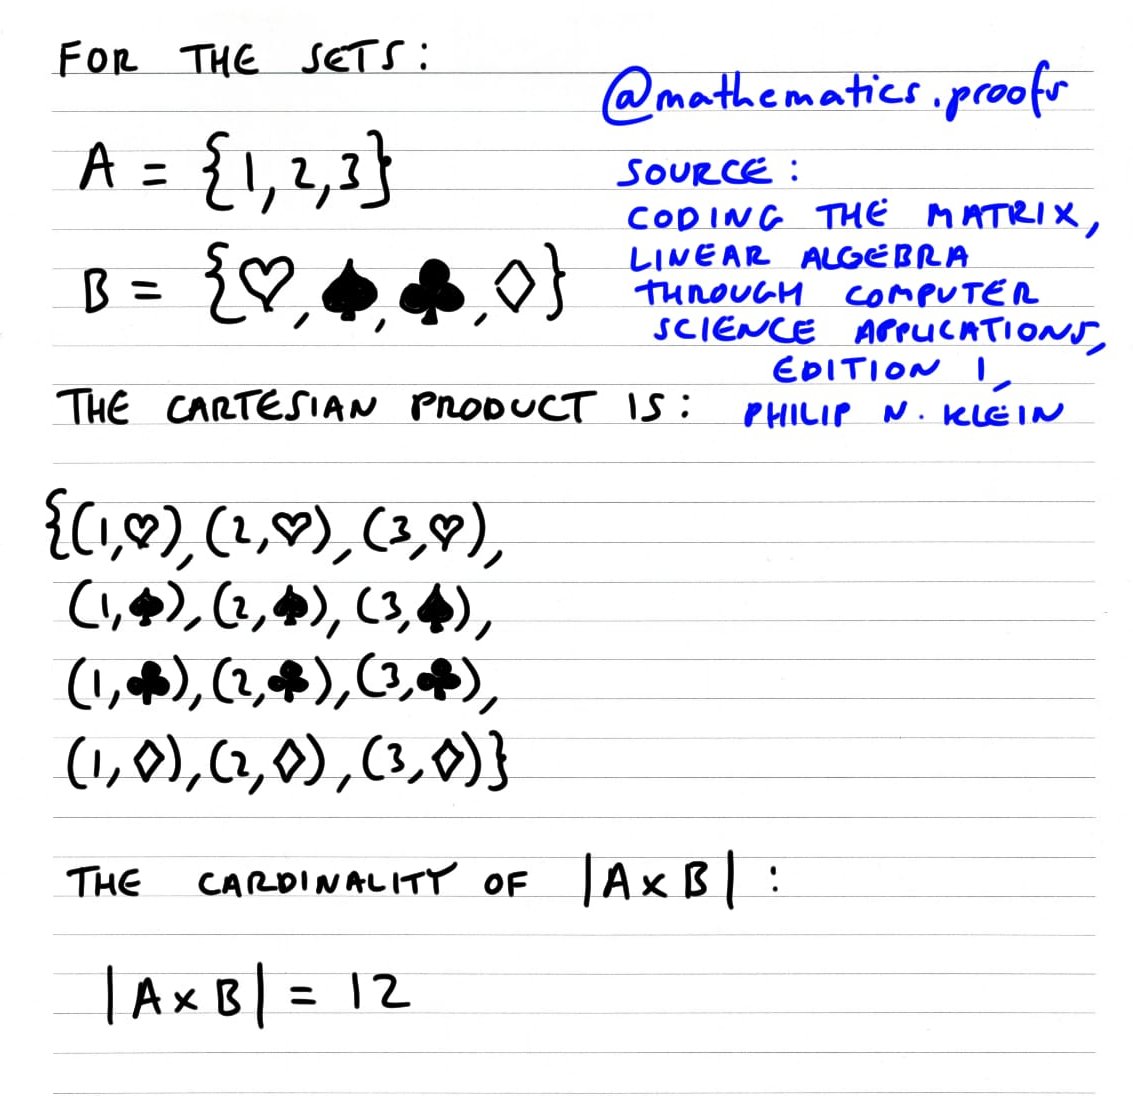 FOR THE SETS:
@mathematics.proofs
A = {1, 2, 3}
SOURCE:
CODING THE MATRIX,
LINEAR ALGEBRA
THROUGH COMPUTER
SCIENCE APPLICATIONS,
EDITION 1,
PHILIP N. KLEIN
B = {♡, ♠, ♣, ◇}
THE CARTESIAN PRODUCT IS:
{(1,♡), (2,♡), (3,♡),
(1,♠), (2,♠), (3,♠),
(1,♣), (2,♣), (3,♣),
(1,◇), (2,◇), (3,◇)}
THE CARDINALITY OF |A×B|:
|A×B| = 12